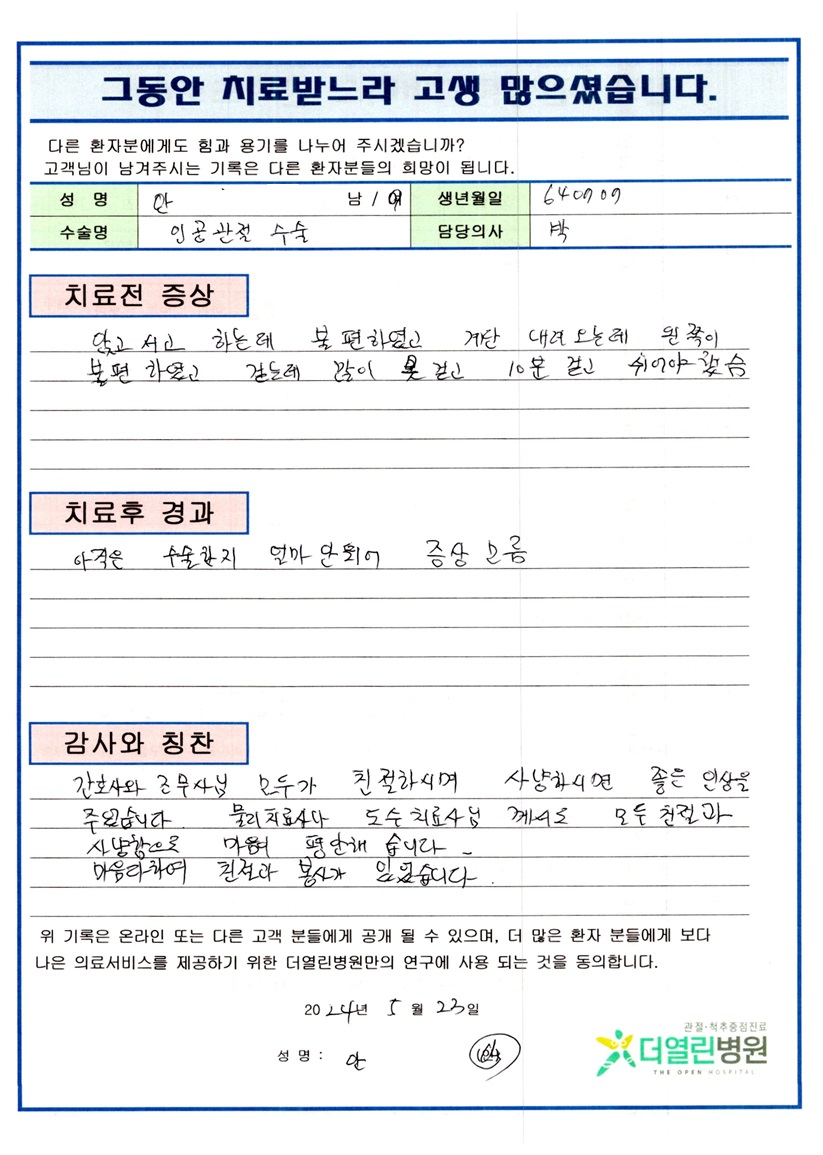 그동안 치료받느라 고생 많으셨습니다.
다른 환자분에게도 힘과 용기를 나누어 주시겠습니까?
고객님이 남겨주시는 기록은 다른 환자분들의 희망이 됩니다.
성 명 안 남 / 여 생년월일 640909
수술명 인공관절 수술 담당의사 박
치료전 증상
앉고 서고 하는데 불편하였고 계단 내려오는데 왼쪽이
불편 하였고 걷는데 많이 못 걷고 10분 걷고 쉬어야 했슴
치료후 경과
아직은 수술한지 얼마 안되어 증상 모름
감사와 칭찬
간호사와 근무사님 모두가 친절하시며 사냥하시면 좋은 인상을
주었습니다. 물리치료사나 도수치료사님 께서도 모두 친절과
사냥함으로 마음이 평안해 습니다
마음다하여 친절과 봉사가 있었습니다.
위 기록은 온라인 또는 다른 고객 분들에게 공개 될 수 있으며, 더 많은 환자 분들에게 보다
나은 의료서비스를 제공하기 위한 더열린병원만의 연구에 사용 되는 것을 동의합니다.
2024년 5월 23일
성 명 : 안
관절·척추중점진료
더열린병원
THE OPEN HOSPITAL